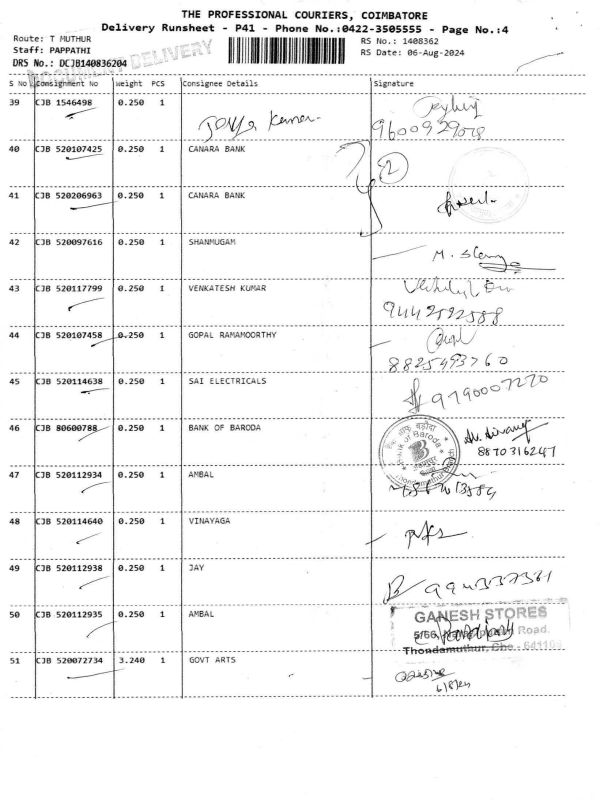 THE PROFESSIONAL COURIERS, COIMBATORE
Delivery Runsheet - P41 - Phone No.:0422-3505555 - Page No.:4
Route: T MUTHUR
RS No.: 1408362
Staff: PAPPATHI
RS Date: 06-Aug-2024
DRS No.: DCJB140836204
DOCUMENT DELIVERY
S No Consignment No Weight PCS Consignee Details Signature
39 CJB 1546498 0.250 1
9600929078
40 CJB 520107425 0.250 1 CANARA BANK
2
41 CJB 520206963 0.250 1 CANARA BANK
42 CJB 520097616 0.250 1 SHANMUGAM
43 CJB 520117799 0.250 1 VENKATESH KUMAR
9442592588
44 CJB 520107458 0.250 1 GOPAL RAMAMOORTHY
8825493760
45 CJB 520114638 0.250 1 SAI ELECTRICALS
9790007270
46 CJB 80600788 0.250 1 BANK OF BARODA
Bank of Baroda
8870316247
47 CJB 520112934 0.250 1 AMBAL
48 CJB 520114640 0.250 1 VINAYAGA
49 CJB 520112938 0.250 1 JAY
50 CJB 520112935 0.250 1 AMBAL
GANESH STORES
Road.
Thondamuthur, Cbe - 641109
51 CJB 520072734 3.240 1 GOVT ARTS
6/8/24